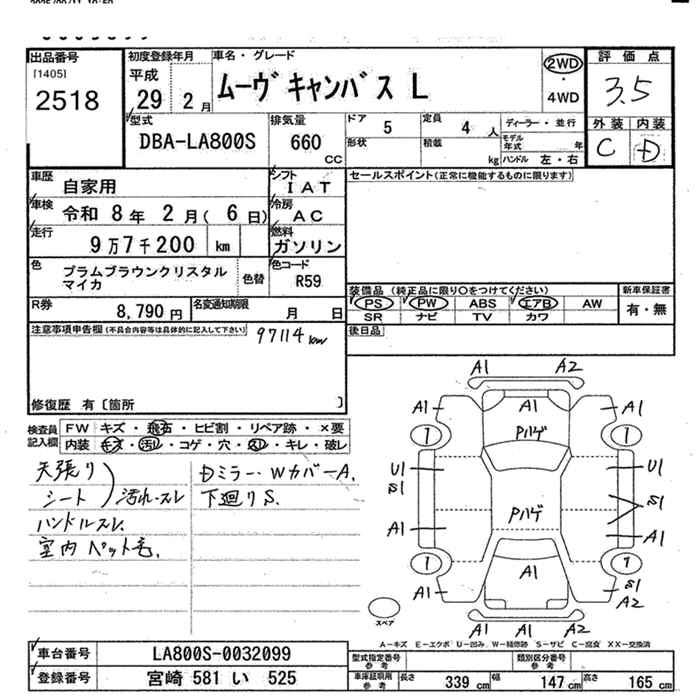 出品番号 初度登録年月 車名・グレード 評価点
[1405] 平成 2WD
2518 29 2月 ムーヴキャンバス L ・ 3.5
4WD
型式 排気量 ドア 5 定員 4人 ディーラー・並行 外装 内装
DBA-LA800S 660 cc 形状 積載 kg モデル年式 年 C D
ハンドル 左・右
車歴 自家用 シフト IAT セールスポイント(正常に機能するものに限ります)
車検 令和 8年 2月(6日) 冷房 AC
走行 9万7千200 km 燃料 ガソリン
色 プラムブラウンクリスタルマイカ 色替 色コード R59
装備品 (純正品に限り○をつけてください) 新車保証書
PS PW ABS エアB AW 有・無
SR ナビ TV カワ
R券 8,790円 名変通知期限 月 日
後日品
注意事項申告欄(不具合内容等は具体的に記入して下さい) 97114km
修復歴 有〔箇所 〕
検査員記入欄 FW キズ・飛石・ヒビ割・リペア跡・×要
内装 キズ・汚れ・コゲ・穴・スレ・キレ・破レ
天張り Dミラー・WカバーA.
シート 汚れ・スレ 下廻りS.
ハンドルスレ.
室内ペット毛.
A1 A2
A1 A1 A1
Pハゲ
1 1
U1 U1
S1 S1
Pハゲ
A1 A1
1 1
A1
S1
A1 A2
A1 A1
スペア
A-キズ E-エクボ U-凹み W-補修跡 S-サビ C-腐食 XX-交換済
車台番号 LA800S-0032099 型式指定番号 参考 類別区分番号 参考
登録番号 宮崎 581 い 525 車庫証明用 参考 長さ 339cm 幅 147cm 高さ 165cm